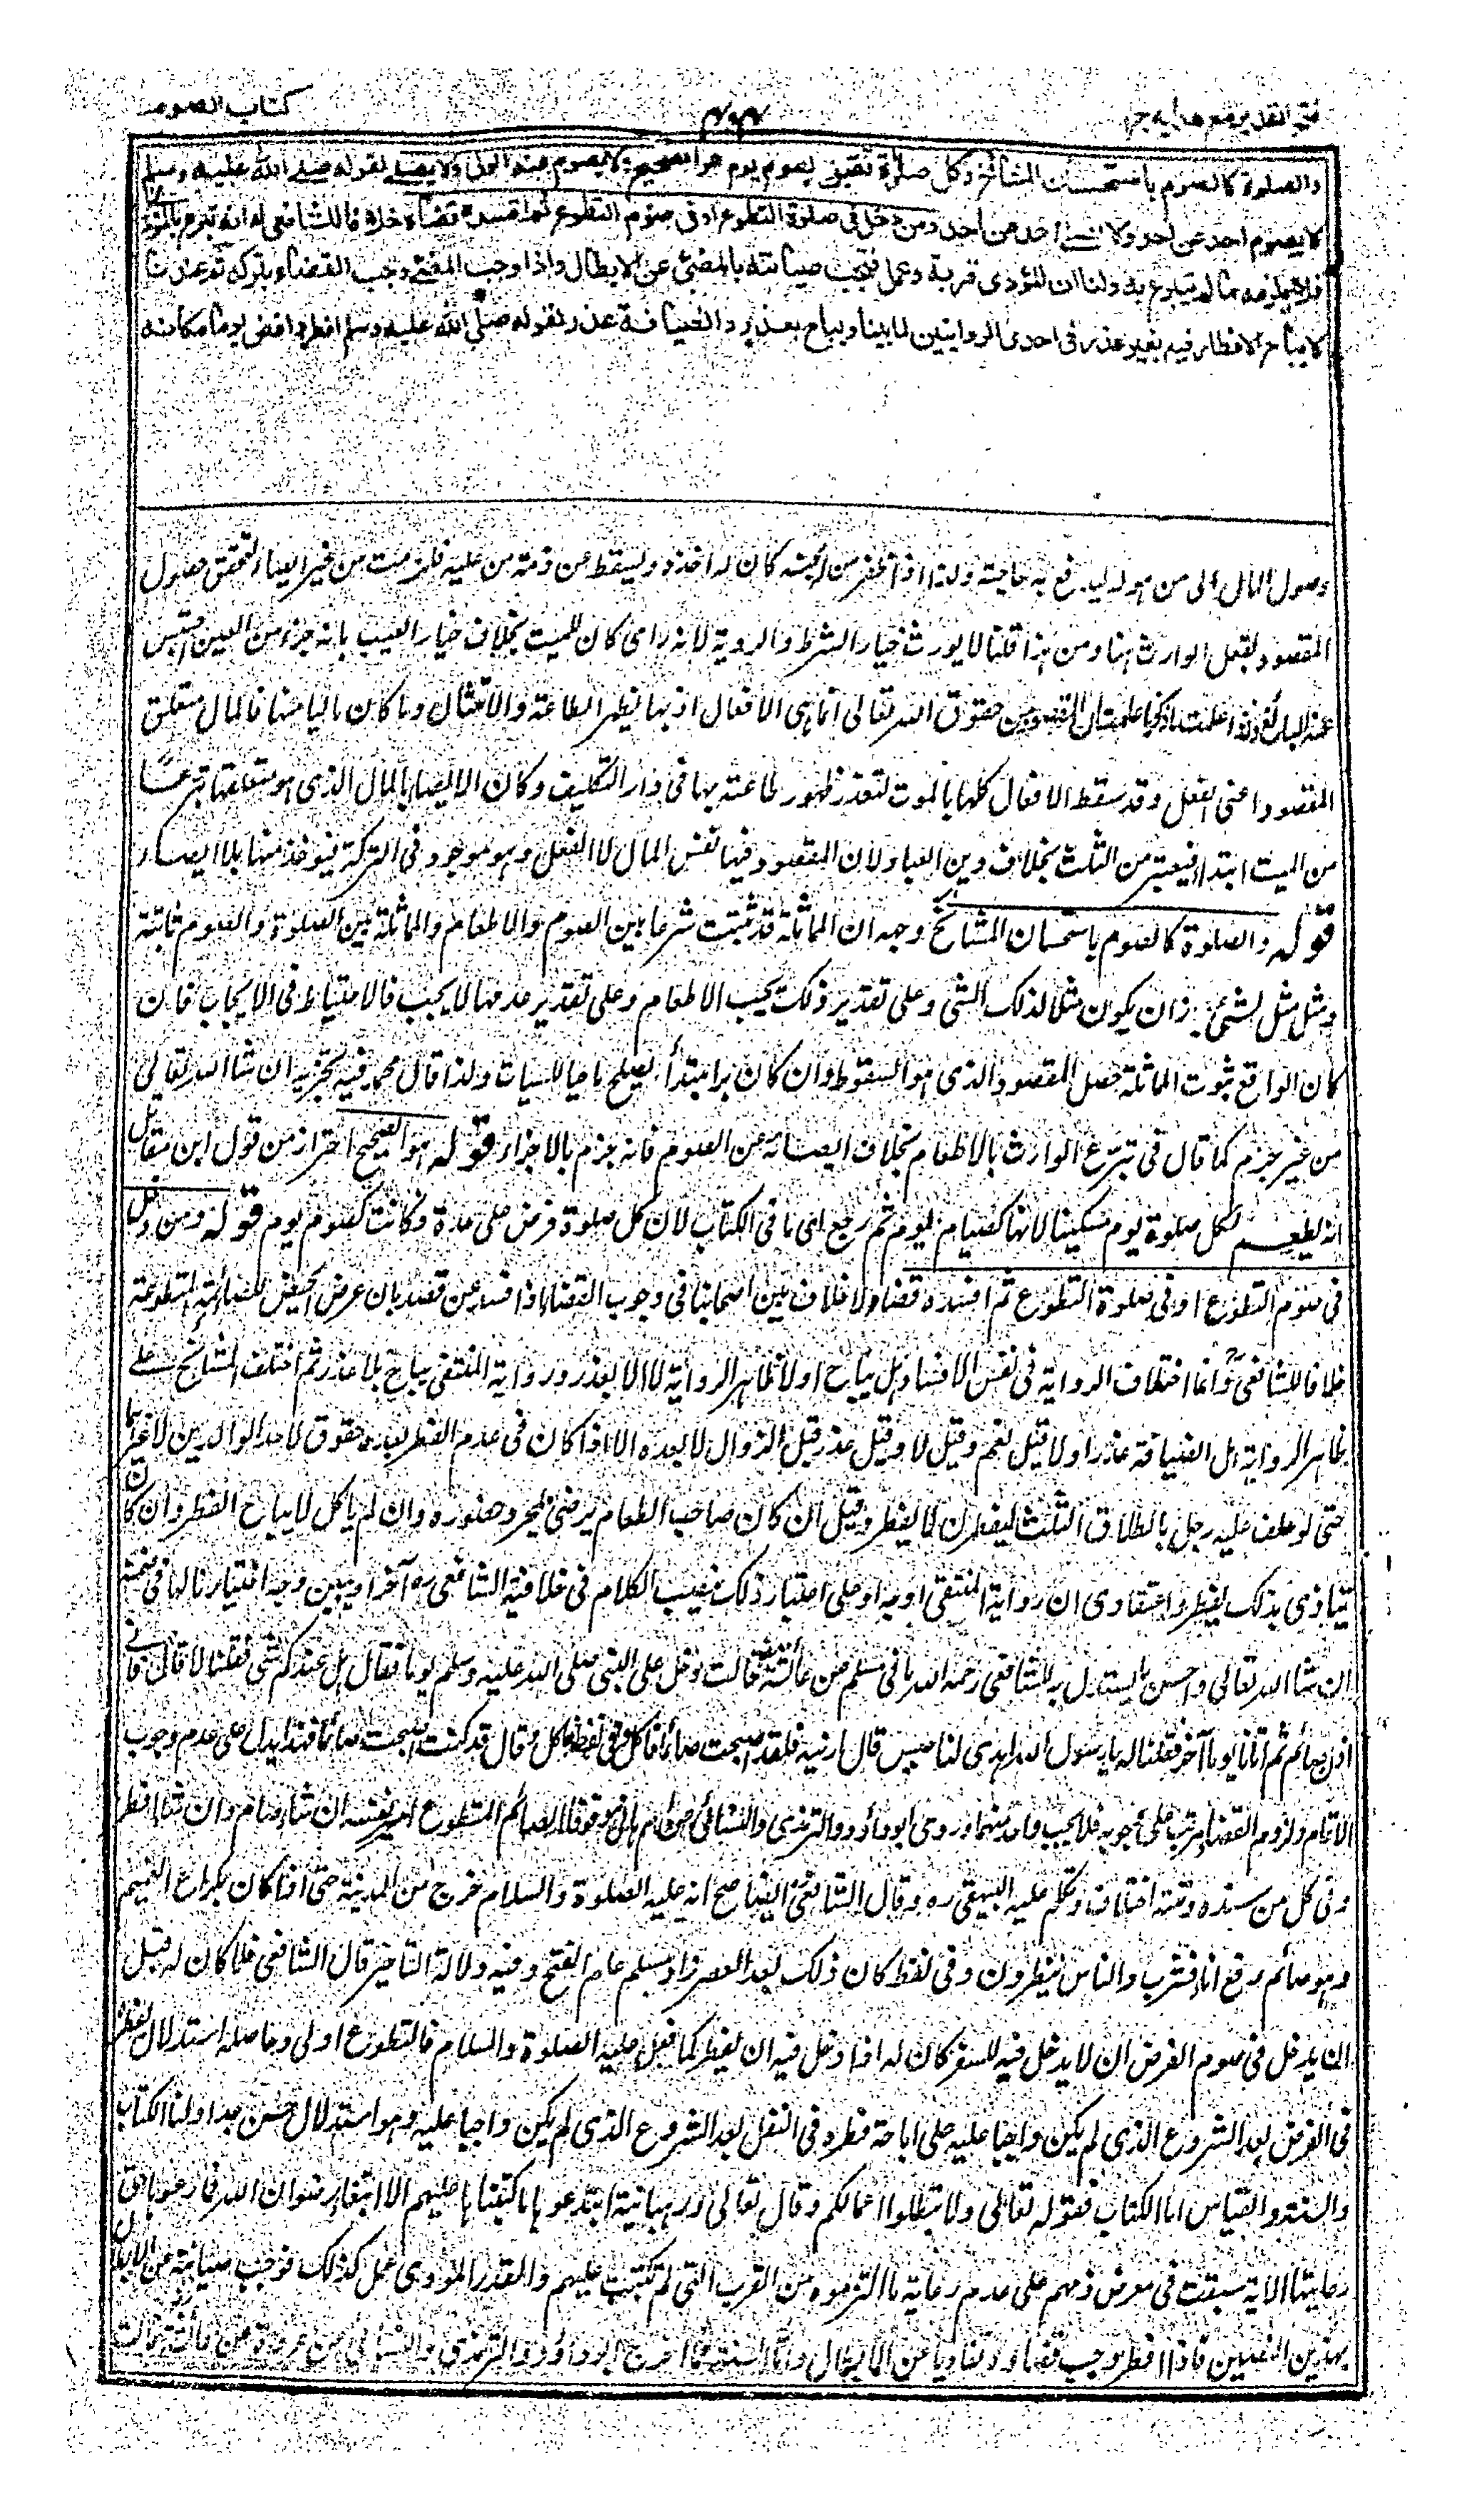 فتح القدير مع هدايه ج ا
كتاب الصوم
والصلوة كالصوم باستحسان المشائخ وكل صلوة تعتبر بصوم يوم هو الصحيح ولا يصوم عنه الولى ولا يصلى لقوله صلى الله عليه وسلم
لا يصوم احد عن احد ولا يصلى احد عن احد ومن دخل فى صلوة التطوع او فى صوم التطوع ثم افسده قضاه خلافا للشافعى له انه تبرع بالمؤدى
فلا يلزمه ما لم يتبرع به ولنا ان المؤدى قربة وعمل فتجب صيانته بالمضى عن الابطال واذا وجب المضى وجب القضاء بتركه ثم عندنا
لا يباح الافطار فيه بغير عذر فى احدى الروايتين لما بينا ويباح بعذر والضيافة عذر لقوله صلى الله عليه وسلم افطر واقض يوما مكانه
وصول المال الى من هو له ليدفع به حاجته ولذا اذا ظفر من له بجنسه كان له اخذه ويسقط عن ذمة من عليه فلزمت من غير ايصاء لتحقق حصول
المقصود بفعل الوارث هنا ومن هذا قلنا لا يورث خيار الشرط والروية لانه راى كان للميت بخلاف خيار العيب بانه جزء من العين احتبس
عند البائع فاذا علمت ما ذكرنا علمت ان المقصود من حقوق الله تعالى انما هى الافعال اذ بها يظهر الطاعة والامتثال وما كان ماليا منها فالمال متعلق
المقصود اعنى الفعل وقد سقط الافعال كلها بالموت لتعذر ظهور طاعته بها فى دار التكليف وكان الايصاء بالمال الذى هو متعلقها تبرعا
من الميت ابتداء فيعتبر من الثلث بخلاف دين العباد لان المقصود فيها نفس المال لا الفعل وهو موجود فى التركة فيوخذ منها بلا ايصاء
قوله والصلوة كالصوم باستحسان المشائخ وجه ان المماثلة قد ثبتت شرعا بين الصوم والاطعام والمماثلة بين الصلوة والصوم ثابتة
ومثل مثل الشئ جاز ان يكون مثلا لذلك الشئ وعلى تقدير ذلك يجب الاطعام وعلى تقدير عدمها لا يجب فالاحتياط فى الايجاب فان
كان الواقع ثبوت المماثلة حصل المقصود الذى هو السقوط وان كان برا مبتدأ يصلح ماحيا للسيئات ولذا قال محمد فيه يجزيه ان شاء الله تعالى
من غير جزم كما قال فى تبرع الوارث بالاطعام بخلاف ايصائه عن الصوم فانه جزم بالاجزاء قوله هو الصحيح احتراز من قول ابن مقاتل
انه يطعم لكل صلوة يوم مسكينا لانها كصيام يوم ثم رجع الى ما فى الكتاب لان كل صلوة فرض على حدة وكانت كصوم يوم قوله ومن دخل
فى صوم التطوع او فى صلوة التطوع ثم افسده قضاه لا خلاف بين اصحابنا فى وجوب القضاء اذا فسد عن قصد بان عرض الحيض للصائمة المتطوعة
خلافا للشافعى وانما اختلاف الرواية فى نفس الافساد هل يباح اولا ظاهر الرواية لا الا بعذر ورواية المنتقى يباح بلا عذر ثم اختلف المشائخ على
ظاهر الرواية هل الضيافة عذر اولا قيل نعم وقيل لا وقيل عذر قبل الزوال لا بعده الا اذا كان فى عدم الفطر بعده عقوق لاحد الوالدين لا غيرهما
حتى لو حلف عليه رجل بالطلاق الثلث ليفطرن لا يفطر وقيل ان كان صاحب الطعام يرضى بمجرد حضوره وان لم ياكل لا يباح الفطر وان كان
يتاذى بذلك يفطر واعتقادى ان رواية المنتقى اوجه وعلى اعتبار ذلك نصب الكلام فى خلافية الشافعى ره آخرا ويبين وجه اختيارنا لها فى ضمنه
ان شاء الله تعالى واحسن ما يستدل به للشافعى رحمه الله ما فى مسلم عن عائشة قالت دخل على النبى صلى الله عليه وسلم يوما فقال هل عندكم شئ فقلنا لا قال فانى
اذن صائم ثم اتانا يوما آخر فقلنا له يا رسول الله اهدى لنا حيس قال ارنيه فلقد اصبحت صائما فاكل وفى لفظ فاكل وقال قد كنت اصبحت صائما فهذا يدل على عدم وجوب
الاتمام ولزوم القضاء مرتب على وجوبه فلا يجب واحد منهما وروى ابو داود والترمذى والنسائى عن ام هانى مرفوعا الصائم المتطوع امير نفسه ان شاء صام وان شاء افطر
وفى كل من سنده ومتنه اختلاف وتكلم عليه البيهقى ره وقال الشافعى ايضا صح انه عليه الصلوة والسلام خرج من المدينة حتى اذا كان بكراع الغميم
وهو صائم رفع اناء فشرب والناس ينظرون وفى لفظ كان ذلك بعد العصر زاد مسلم عام الفتح وفيه دلالة التاخير قال الشافعى فلما كان له قبل
ان يدخل فى صوم الفرض ان لا يدخل فيه للسفر كان له اذا دخل فيه ان يفطر كما فعل عليه الصلوة والسلام فالتطوع اولى وحاصله استدلال بفطره
فى الفرض بعد الشروع الذى لم يكن واجبا عليه على اباحة فطره فى النفل بعد الشروع الذى لم يكن واجبا عليه وهو استدلال حسن جدا ولنا الكتاب
والسنة والقياس اما الكتاب فقوله تعالى ولا تبطلوا اعمالكم وقال تعالى ورهبانية ابتدعوها ما كتبناها عليهم الا ابتغاء رضوان الله فما رعوها حق
رعايتها الاية سيقت فى معرض ذمهم على عدم رعاية ما التزموه من القرب التى لم تكتب عليهم والقدر المودى عمل كذلك فوجب صيانته عن الابطال
بهذين النصين فاذا افطر وجب قضاؤه تفاديا عن الابطال واما السنة فما اخرج ابو داود والترمذى والنسائى عن عروة عن عائشة قالت